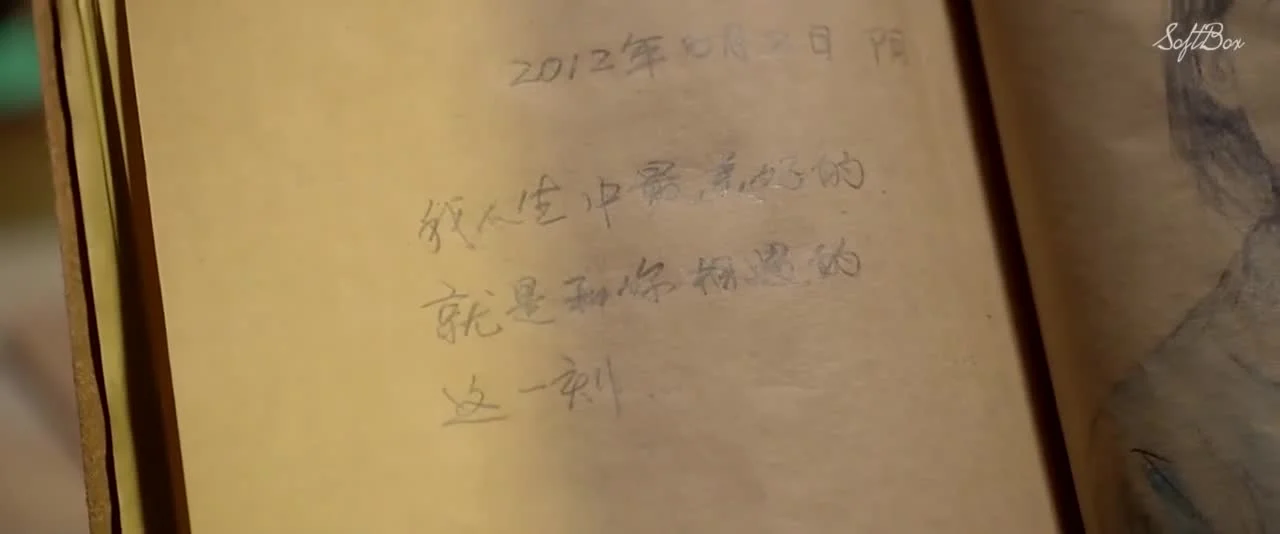 SoftBox
2012年 月 日 阴
我人生中最美好的
就是和你相遇的
这一刻